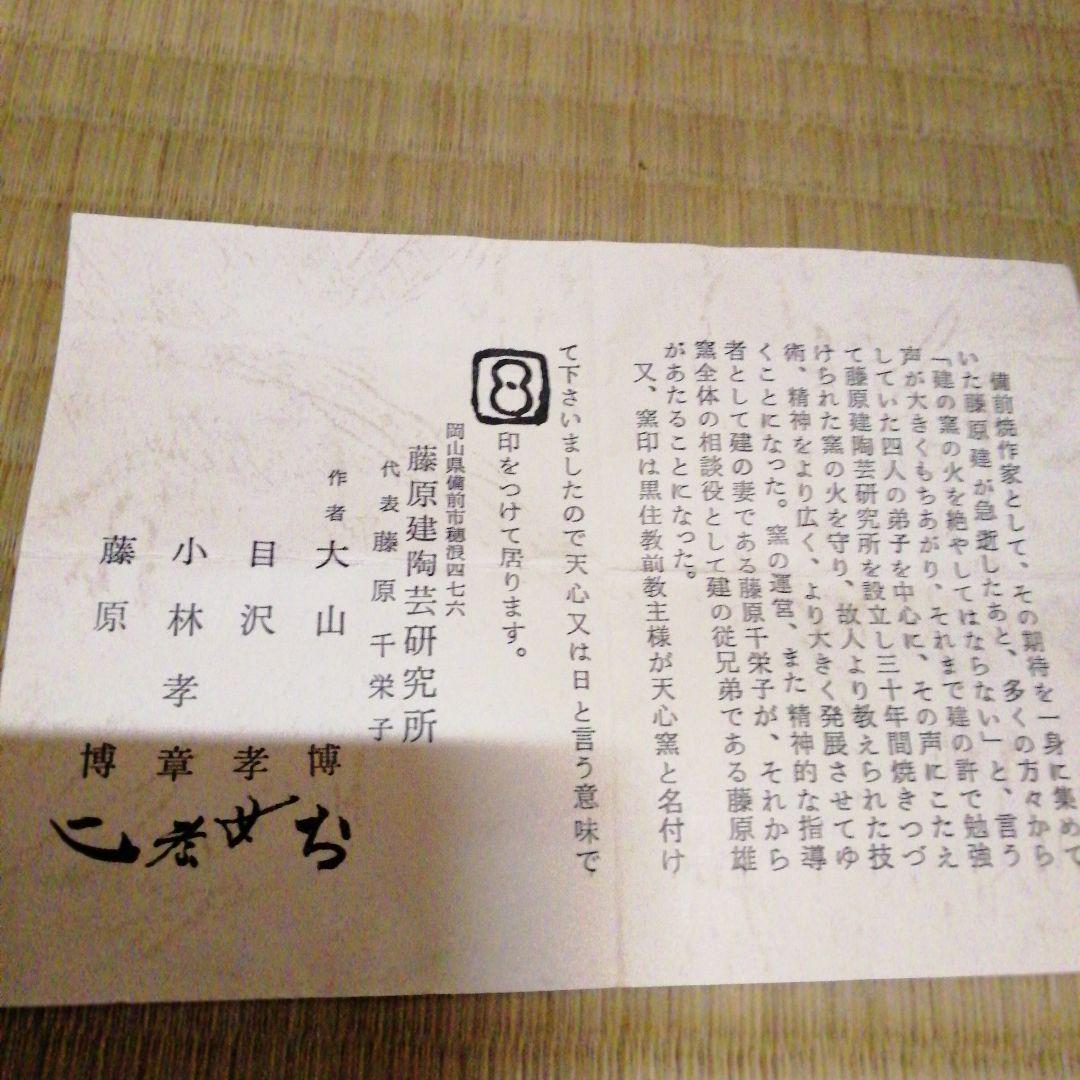 備前焼作家として、その期待を一身に集めて
いた藤原建が急逝したあと、多くの方々から
「建の窯の火を絶やしてはならない」と、言う
声が大きくもちあがり、それまで建の許で勉強
していた四人の弟子を中心に、その声にこたえ
て藤原建陶芸研究所を設立し三十年間焼きつづ
けられた窯の火を守り、故人より教えられた技
術、精神をより広く、より大きく発展させてゆ
くことになった。窯の運営、また精神的な指導
者として建の妻である藤原千栄子が、それから
窯全体の相談役として建の従兄弟である藤原雄
があたることになった。
又、窯印は黒住教前教主様が天心窯と名付け
て下さいましたので天心又は日と言う意味で
印をつけて居ります。
岡山県備前市穂浪四七六
藤原建陶芸研究所
代表藤原千栄子
作者大山博
目沢孝
小林孝章
藤原博